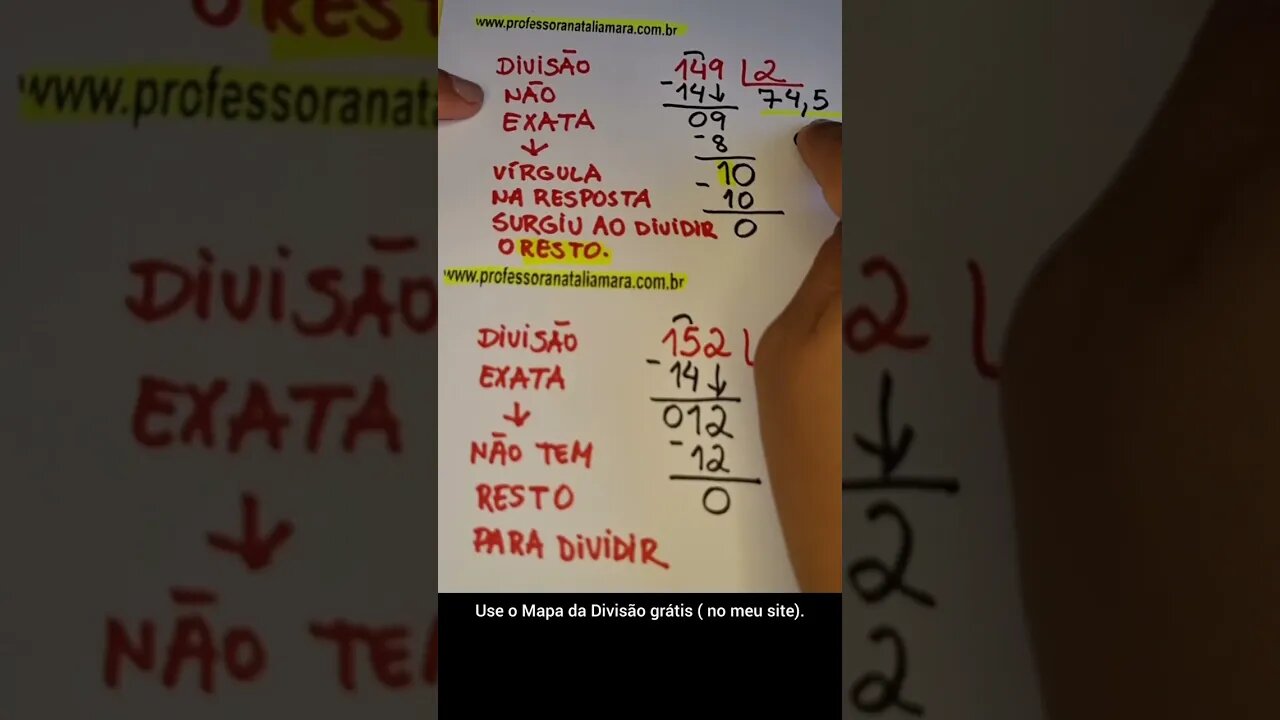 www.professoranataliamara.com.br
DIVISÃO 149 2
NÃO -14↓ 74,5
EXATA 09
↓ -8
VÍRGULA 10
NA RESPOSTA - 10
SURGIU AO DIVIDIR 0
O RESTO.
www.professoranataliamara.com.br
DIVISÃO 152
EXATA -14↓
↓ 012
NÃO TEM -12
RESTO 0
PARA DIVIDIR
Use o Mapa da Divisão grátis ( no meu site).